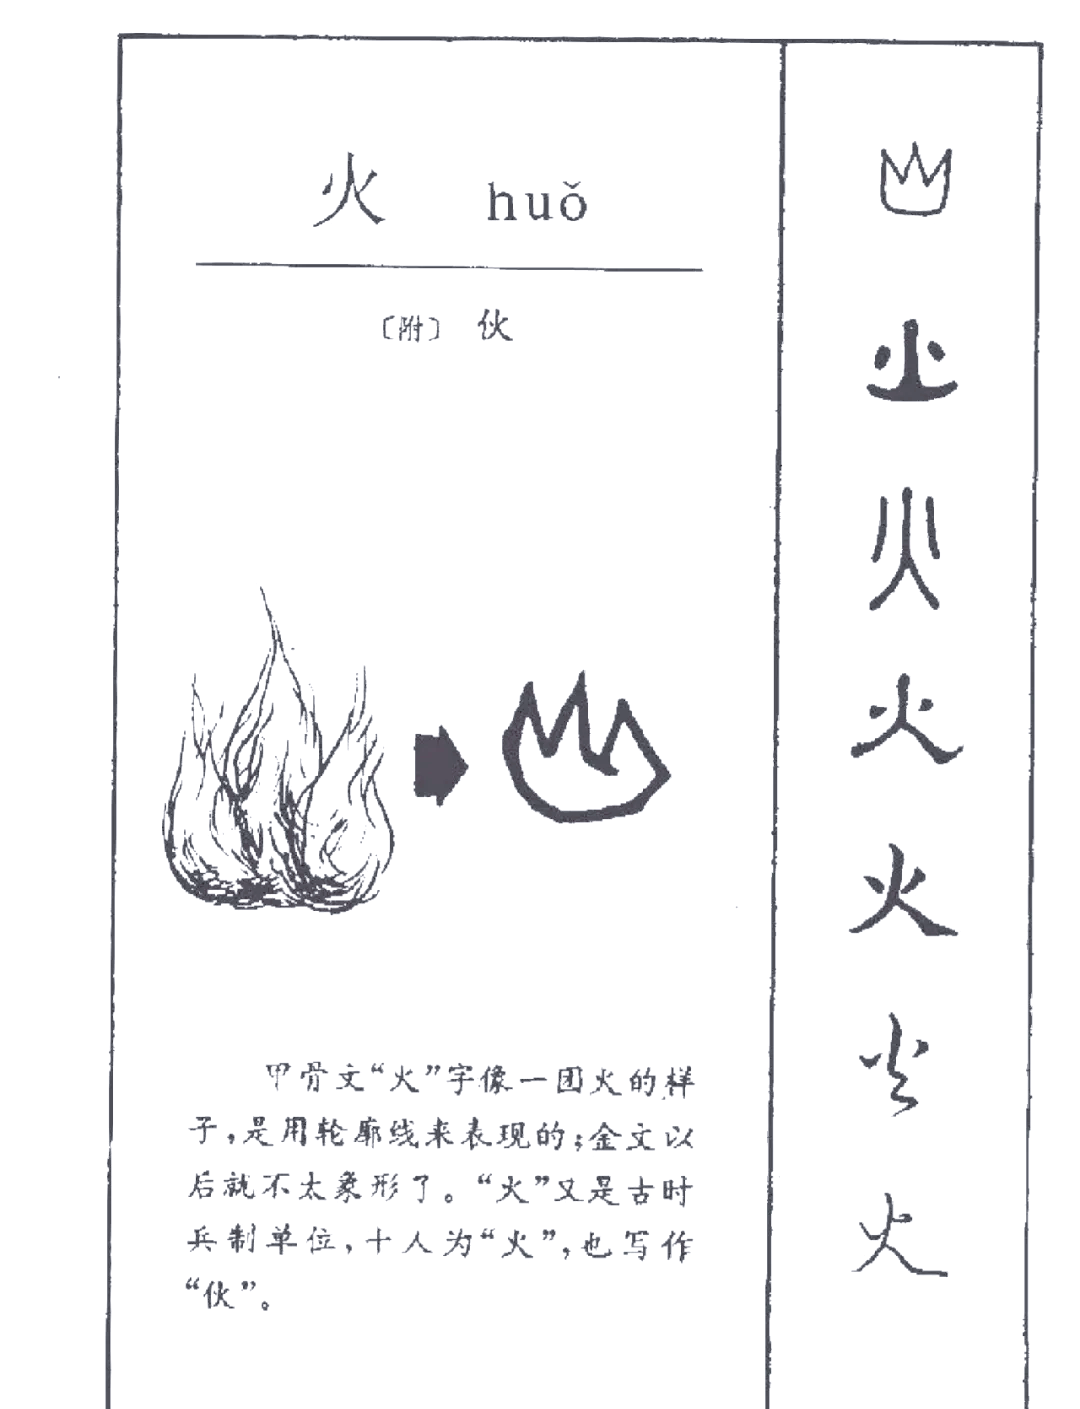 火 huǒ
〔附〕 伙
甲骨文“火”字像一团火的样
子，是用轮廓线来表现的；金文以
后就不太象形了。“火”又是古时
兵制单位，十人为“火”，也写作
“伙”。
火
火
火
火
火
火
火